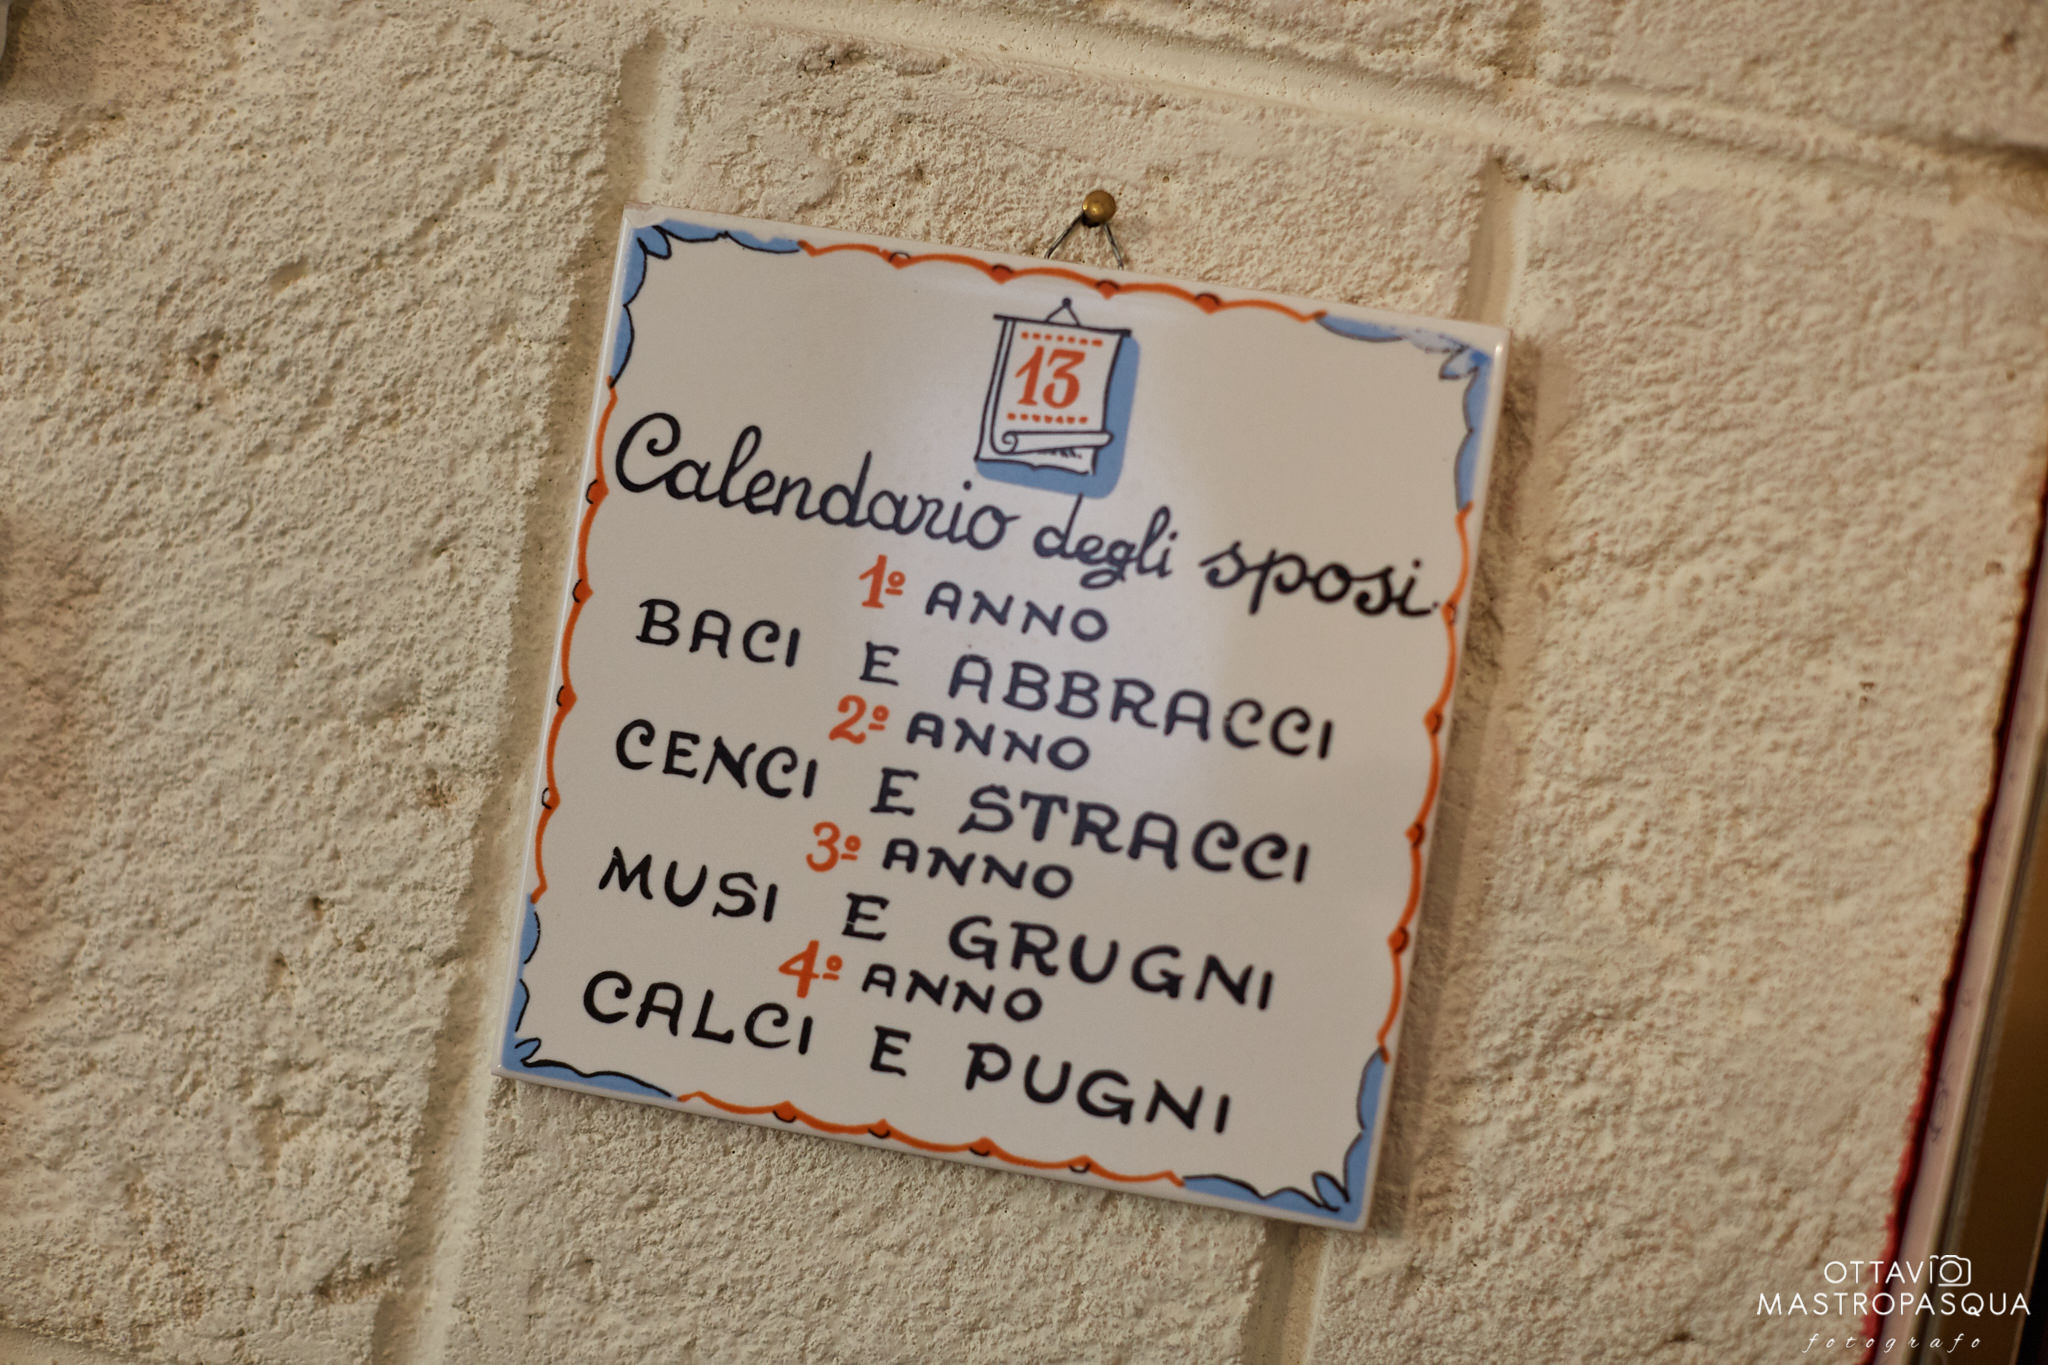 13
Calendario degli sposi
1º ANNO
BACI E ABBRACCI
2º ANNO
CENCI E STRACCI
3º ANNO
MUSI E GRUGNI
4º ANNO
CALCI E PUGNI
OTTAVIO
MASTROPASQUA
fotografo